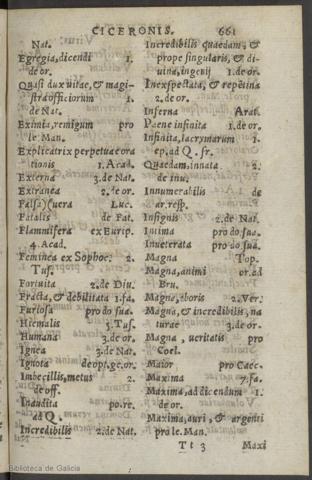 CICERONIS. 661
Nat.
Egregia, dicendi 1.
de or.
Quasi dux uitæ, & magi-
stra officiorum 1.
de Nat.
Eximia, remigum pro
le. Man.
Explicatrix perpetuæ ora
tionis 1. Acad.
Externa 3. de Nat.
Extranea 2. de or.
Falsa) (uera Luc.
Fatalis de Fat.
Flammifera ex Eurip.
4. Acad.
Feminea ex Sophoc. 2.
Tus.
Fortuita 2. de Diu.
Fracta, & debilitata 1. fa.
Furiosa pro do. sua.
Hiemalis 5. Tus.
Humana 3. de or.
Ignea 3. de Nat.
Ignota de opt. ge. or.
Imbecillis, metus 2.
de off.
Inaudita po. re.
ad Q.
Incredibilis 2. de Nat.
Incredibilis quædam, &
prope singularis, & di-
uina, ingenij 1. de or.
Inexspectata, & repetina
2. de or.
Inferna Arat.
Pæne infinita 1. de or.
Infinita, lacrymarum 1.
ep. ad Q. fr.
Quædam, innata 2.
de inu.
Innumerabilis de
ar. resp.
Insignis 2. de Nat.
Intima pro do. sua.
Inueterata pro do. sua.
Magna Top.
Magna, animi or. ad
Bru.
Magna, eboris 2. Ver.
Magna, & incredibilis, na
turæ 3. de or.
Magna, ueritatis pro
Coel.
Maior pro Cæc.
Maxima 7. fa.
Maxima, ad dicendum 1.
de or.
Maxima, auri, & argenti
pro le. Man.
Tt 3 Maxi
Biblioteca de Galicia